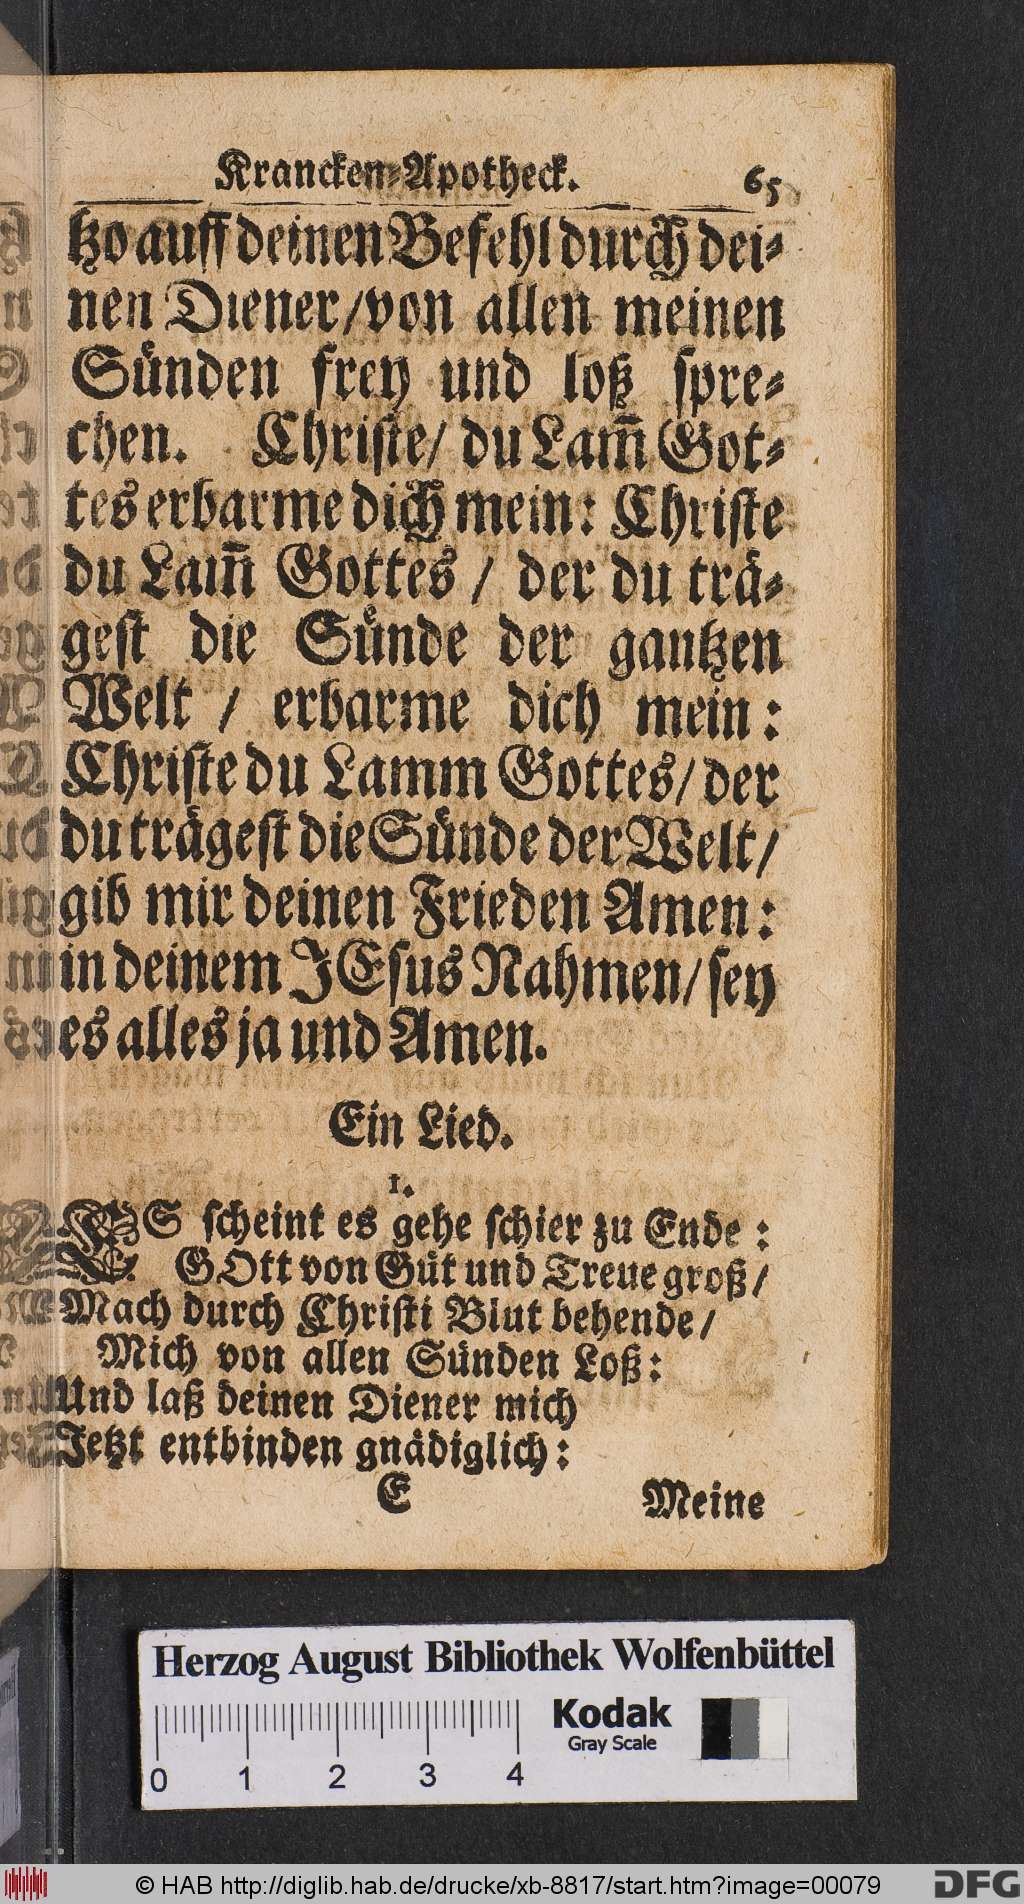 Krancken-Apotheck. 65
tzo auff deinen Befehl durch dei-
nen Diener/von allen meinen
Sünden frey und loß spre-
chen. Christe/ du Lam̄ Got-
tes erbarme dich mein: Christe
du Lam̄ Gottes / der du trä-
gest die Sünde der gantzen
Welt / erbarme dich mein:
Christe du Lamm Gottes/ der
du trägest die Sünde der Welt/
gib mir deinen Frieden Amen:
in deinem JEsus Nahmen/ sey
es alles ja und Amen.
Ein Lied.
1.
ES scheint es gehe schier zu Ende:
GOtt von Güt und Treue groß/
Mach durch Christi Blut behende/
Mich von allen Sünden Loß:
Und laß deinen Diener mich
Jetzt entbinden gnädiglich:
E Meine
Herzog August Bibliothek Wolfenbüttel
Kodak
Gray Scale
0 1 2 3 4
© HAB http://diglib.hab.de/drucke/xb-8817/start.htm?image=00079
DFG